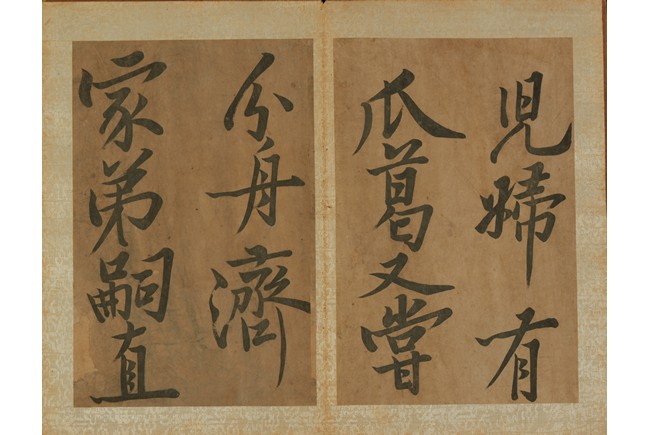 児婦有
瓜葛又嘗
分舟濟
家弟嗣直